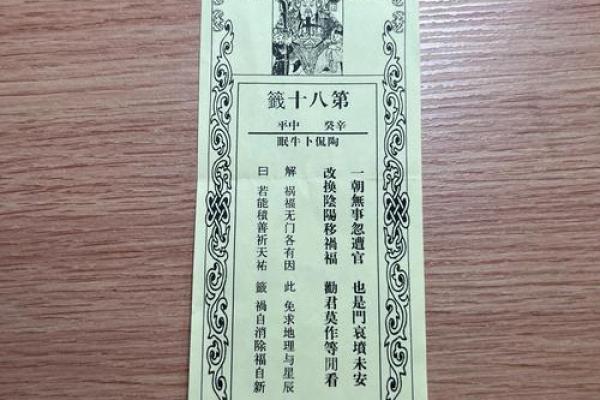 第八十籤
辛癸 中平
陶侃卜牛眠
一朝無事忽遭官 也是門哀墳未安
改換陰陽移禍福 勸君莫作等閒看
解 祸福无门各有因 此 免求地理与星辰
曰 若能積善祈天祐 籤 禍自消除福自新